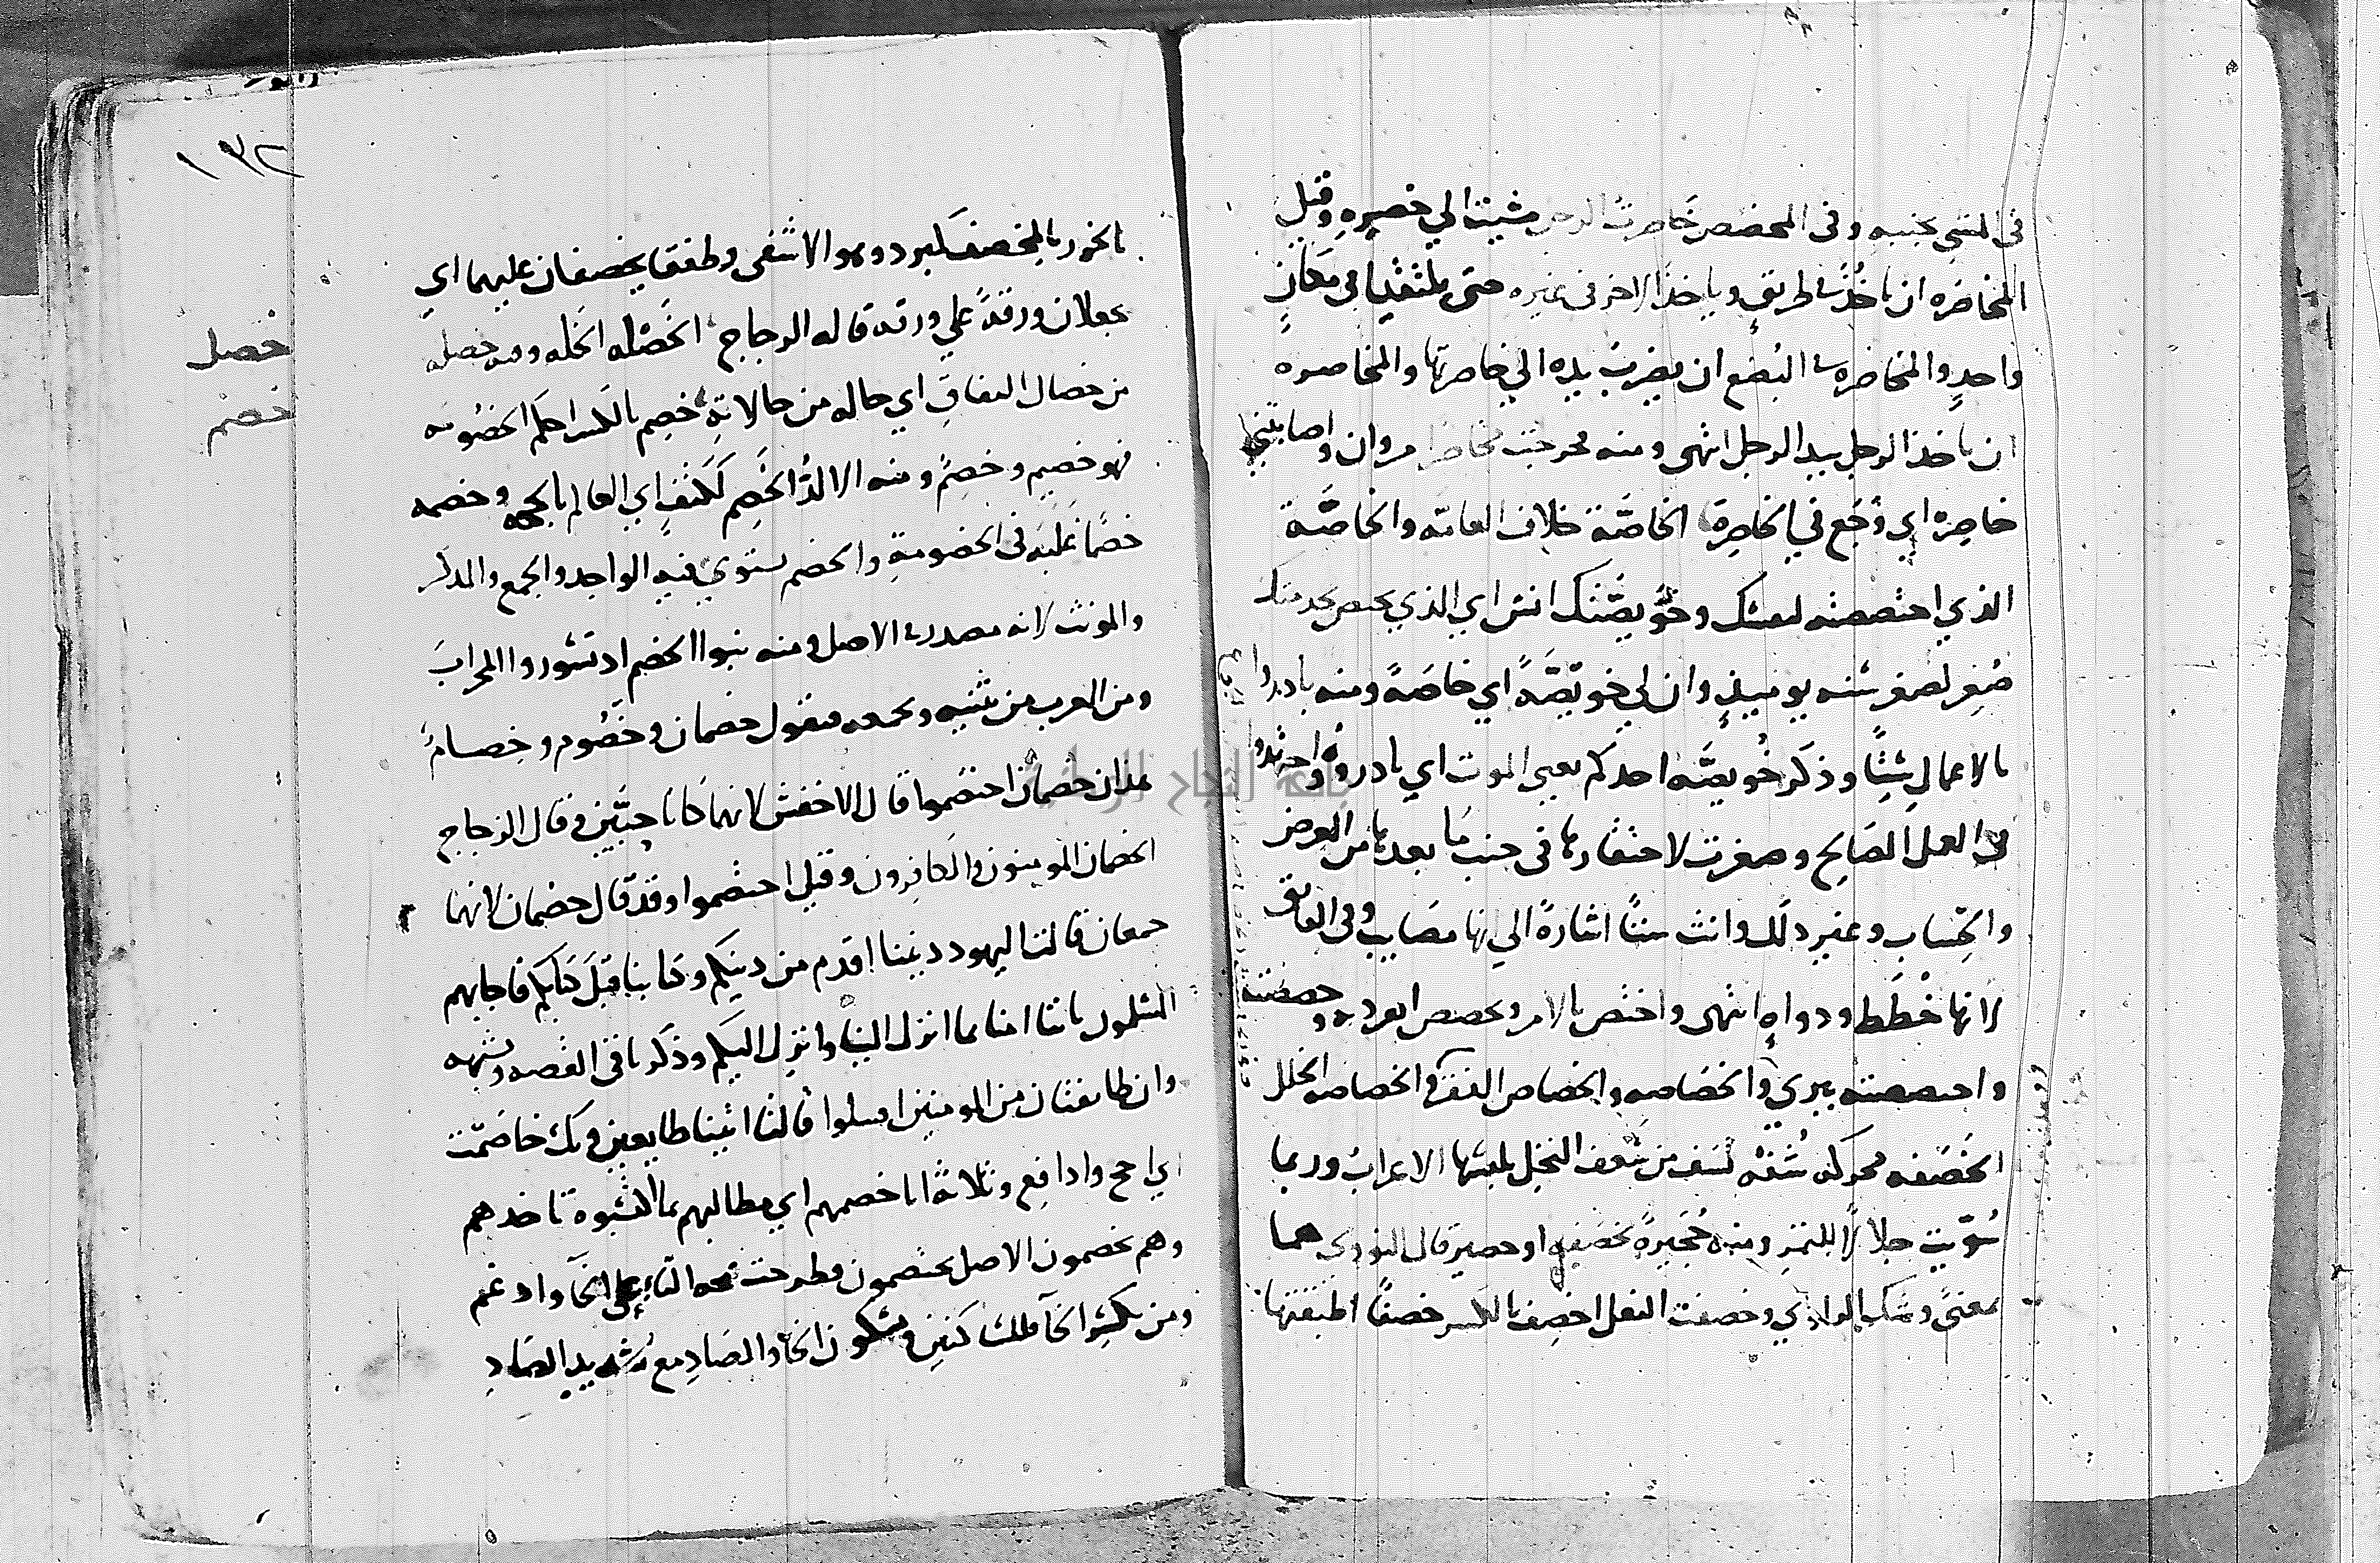 في المشي بجنبه وفي المخصص خاصرت الرجل مشيت الي خصره وقيل
المخاصره ان ياخذ في طريق وياخذ الاخر في غيره حتى يلتقيا في مكان
واحد والمخاصره في البضع ان يضرب بيده الي خاصرتها والمخاصره
ان ياخذ الرجل بيد الرجل انتهى ومنه فخرجت مخاصرا مروان واصابتني
خاصرة اي وجع في الخاصرة الخاصّة خلاف العامّه والخاصَّة
الذي اختصصته لنفسك وخُوَيصَّتك انس اي الذي يختص بخدمتك
صُغِر لصغر سنه يوميذٍ وان لي خويصَّةً اي خاصَةً ومنه بادروا
بالاعمالِ سِتًّا وذكر خُويصَّه احدكم يعني الموت اي بادروه واجتهدوا
في العمل الصَالِح وصغرت لاحتقارها في جنب ما بعدها من العرض
والحِساب وغير ذلك وانث ستًّا اشارةً الي انها مصَايب وفي الفايق
لانها خْطَط ودواهٍ انتهى واختص بالامر وتخصص انفرد به وخصصته
واختصصته بيري والخصَاصه والخصاص الفقر والخصاصه الخلل
الخصَفه محركه سُفَّه تسَف من سَعف النخل يلبسها الاعرابُ وربما
سُوّيت جلالًا للتمر ومنه حُجَيرةً بخصَفهِ او حصير قال النووي هما
بمعنىً وشك الراوي وخصفت النعل اخصِف بالكسر خصفًا اطبقتها
١٣٢
بالخرز بالمِخصف كمِبرد وهو الاشفى وطفقا يخصفان عليهما اي
يجعلان ورقةً علي ورقة قاله الزجاج الخَصْله الخَله ومنه خصله
خصل
من خصال النفاقِ اي حاله من حالاتِه خصِم بالكسر احكم الخصُومَه
خصم
فهو خصيم وخصِمٌ ومنه الالدُّ الخَصِم ككَتِفٍ اي العالم بالحجه وخصمه
خصمًا غَلبَه في الخصومةِ والخصم يستوي فيه الواحد والجمع والمذكر
والمونث لانه مصدر في الاصل ومنه نبوا الخصم اذ تسوروا المحرابَ
ومن العرب من يثنيه ويجمعه فيقول خصمان وخُصُوم وخِصامٌ
هذان خصمان اختصَموا قال الاخفش لانهما كانا حِيَّيْن وقال الزجاج
الخصمان المومنون والكافِرون وقيل اختصموا وقد قال خصمان لانهما
جمعان قالت اليهود ديننا اقدم من دينكم وكتابنا قبل كتابكم فاجابهم
المسلمون باننا امنا بما انزل الينا وانزل اليكم وذكر باقي القصه ويشبهه
وان طايفتان من المومنين اقتتلوا قالتا اتينا طايعِين وبك خاصَمْت
اي احج وادافِع وثلاثة انا خصمهم اي مطالبهم بما تاخذهم
وهم يخصمون الاصل يختصمون فطرحت فتحه التاء على الخا وادغم
ومن يكسِر الخا فلساكنين وبسكون الخا والصَادِ مع تشديد الصَادِ